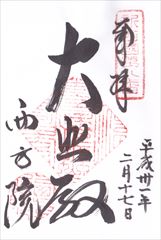 奉拝
平成卅一年
二月十七日
大悲殿
西方院